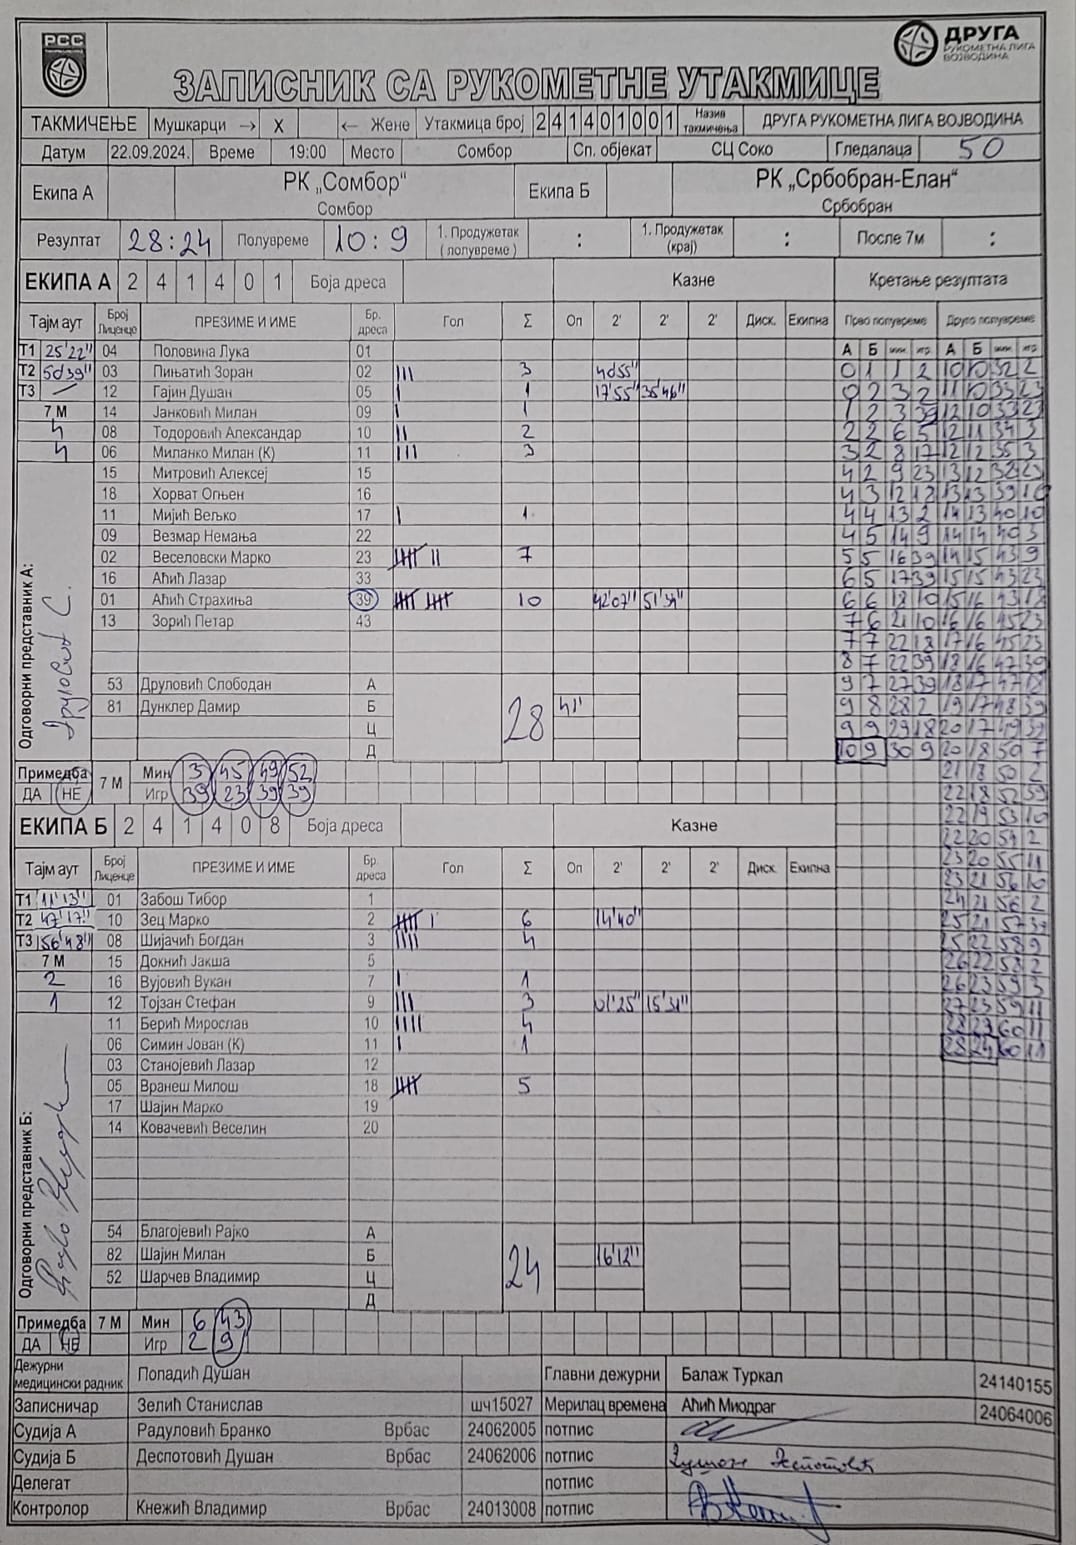 РСС
ДРУГА
РУКОМЕТНА ЛИГА
ВОЈВОДИНА
ЗАПИСНИК СА РУКОМЕТНЕ УТАКМИЦЕ
ТАКМИЧЕЊЕ Мушкарци → X ← Жене Утакмица број 2 4 1 4 0 1 0 0 1 Назив такмичења ДРУГА РУКОМЕТНА ЛИГА ВОЈВОДИНА
Датум 22.09.2024. Време 19:00 Место Сомбор Сп. објекат СЦ Соко Гледалаца 50
Екипа А РК „Сомбор“ Екипа Б РК „Србобран-Елан“
Сомбор Србобран
Резултат 28:24 Полувреме 10:9 1. Продужетак (полувреме) : 1. Продужетак (крај) : После 7м :
ЕКИПА А 2 4 1 4 0 1 Боја дреса Казне Кретање резултата
Тајм аут Број Лиценце ПРЕЗИМЕ И ИМЕ Бр. дреса Гол Σ Оп 2' 2' 2' Диск. Екипна Прво полувреме Друго полувреме
Т1 25'22" 04 Половина Лука 01 А Б мин. игр. А Б мин. игр.
Т2 50'39" 03 Пињатић Зоран 02 III 3 40'55" 0 1 1 2 10 10 32 2
Т3 — 12 Гајин Душан 05 I 1 17'55" 35'46" 0 2 3 2 11 10 33 23
7 М 14 Јанковић Милан 09 I 1 1 2 3 39 12 10 33 23
4 08 Тодоровић Александар 10 II 2 2 2 6 5 12 11 34 3
4 06 Миланко Милан (К) 11 III 3 3 2 8 17 12 12 35 3
15 Митровић Алексеј 15 4 2 9 23 13 12 38 23
18 Хорват Огњен 16 4 3 12 18 13 13 39 10
11 Мијић Вељко 17 I 1 4 4 13 2 14 13 40 10
09 Везмар Немања 22 4 5 14 9 14 14 40 3
02 Веселовски Марко 23 IIIII II 7 5 5 16 39 14 15 43 9
16 Аћић Лазар 33 6 5 17 39 15 15 43 23
01 Аћић Страхиња 39 IIIII IIIII 10 42'07" 51'34" 6 6 18 10 15 16 43 18
13 Зорић Петар 43 7 6 21 10 16 16 45 23
7 7 22 18 17 16 45 23
8 7 22 39 18 16 47 39
53 Друловић Слободан А 9 7 27 39 18 17 47 18
81 Дунклер Дамир Б 28 41' 9 8 28 2 19 17 48 39
Ц 9 9 29 18 20 17 49 39
Д 10 9 30 9 20 18 50 7
Одговорни представник А: Друловић С.
Примедба 7 М Мин 3 45 49 52 21 18 50 2
ДА НЕ Игр 39 23 39 39 22 18 52 39
22 19 53 10
ЕКИПА Б 2 4 1 4 0 8 Боја дреса Казне 22 20 54 2
Тајм аут Број Лиценце ПРЕЗИМЕ И ИМЕ Бр. дреса Гол Σ Оп 2' 2' 2' Диск. Екипна 23 20 55 11
23 21 56 10
Т1 11'13" 01 Забош Тибор 1 24 21 56 2
Т2 47'17" 10 Зец Марко 2 IIIII I 6 14'40" 25 21 57 39
Т3 56'48" 08 Шијачић Богдан 3 IIII 4 25 22 58 9
7 М 15 Докнић Јакша 5 26 22 58 2
2 16 Вујовић Вукан 7 I 1 26 23 59 3
1 12 Тојзан Стефан 9 III 3 01'25" 15'31" 27 23 59 11
11 Берић Мирослав 10 IIII 4 28 23 60 11
06 Симин Јован (К) 11 I 1 28 24 60 18
03 Станојевић Лазар 12
05 Вранеш Милош 18 IIIII 5
17 Шајин Марко 19
14 Ковачевић Веселин 20
54 Благојевић Рајко А
82 Шајин Милан Б 24 16'12"
52 Шарчев Владимир Ц
Д
Одговорни представник Б:
Примедба 7 М Мин 6 43
ДА НЕ Игр 2 9
Дежурни медицински радник Попадић Душан Главни дежурни Балаж Туркал 24140155
Записничар Зелић Станислав шч15027 Мерилац времена Аћић Миодраг 24064006
Судија А Радуловић Бранко Врбас 24062005 потпис
Судија Б Деспотовић Душан Врбас 24062006 потпис Душан Деспотовић
Делегат потпис
Контролор Кнежић Владимир Врбас 24013008 потпис